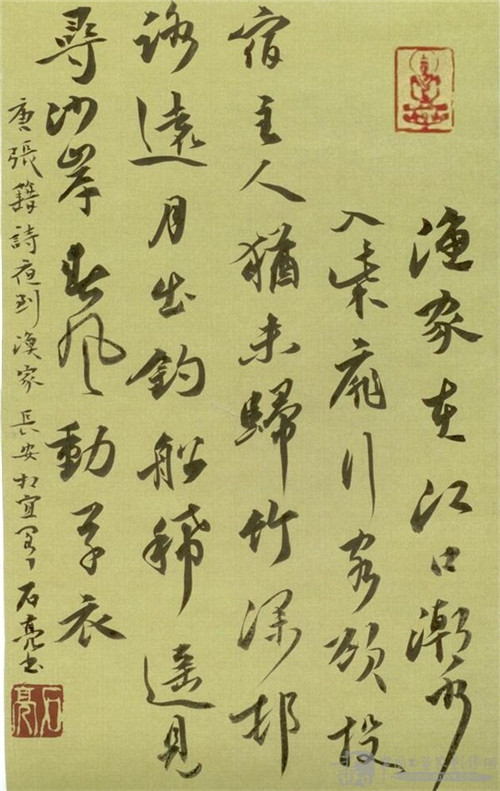 漁家在江口潮水
入柴扉行客欲投
宿主人猶未歸竹深邨
路遠月出釣船稀遙見
尋沙岸春風動草衣
唐張籍詩夜到漁家 長安 石亮書
石亮